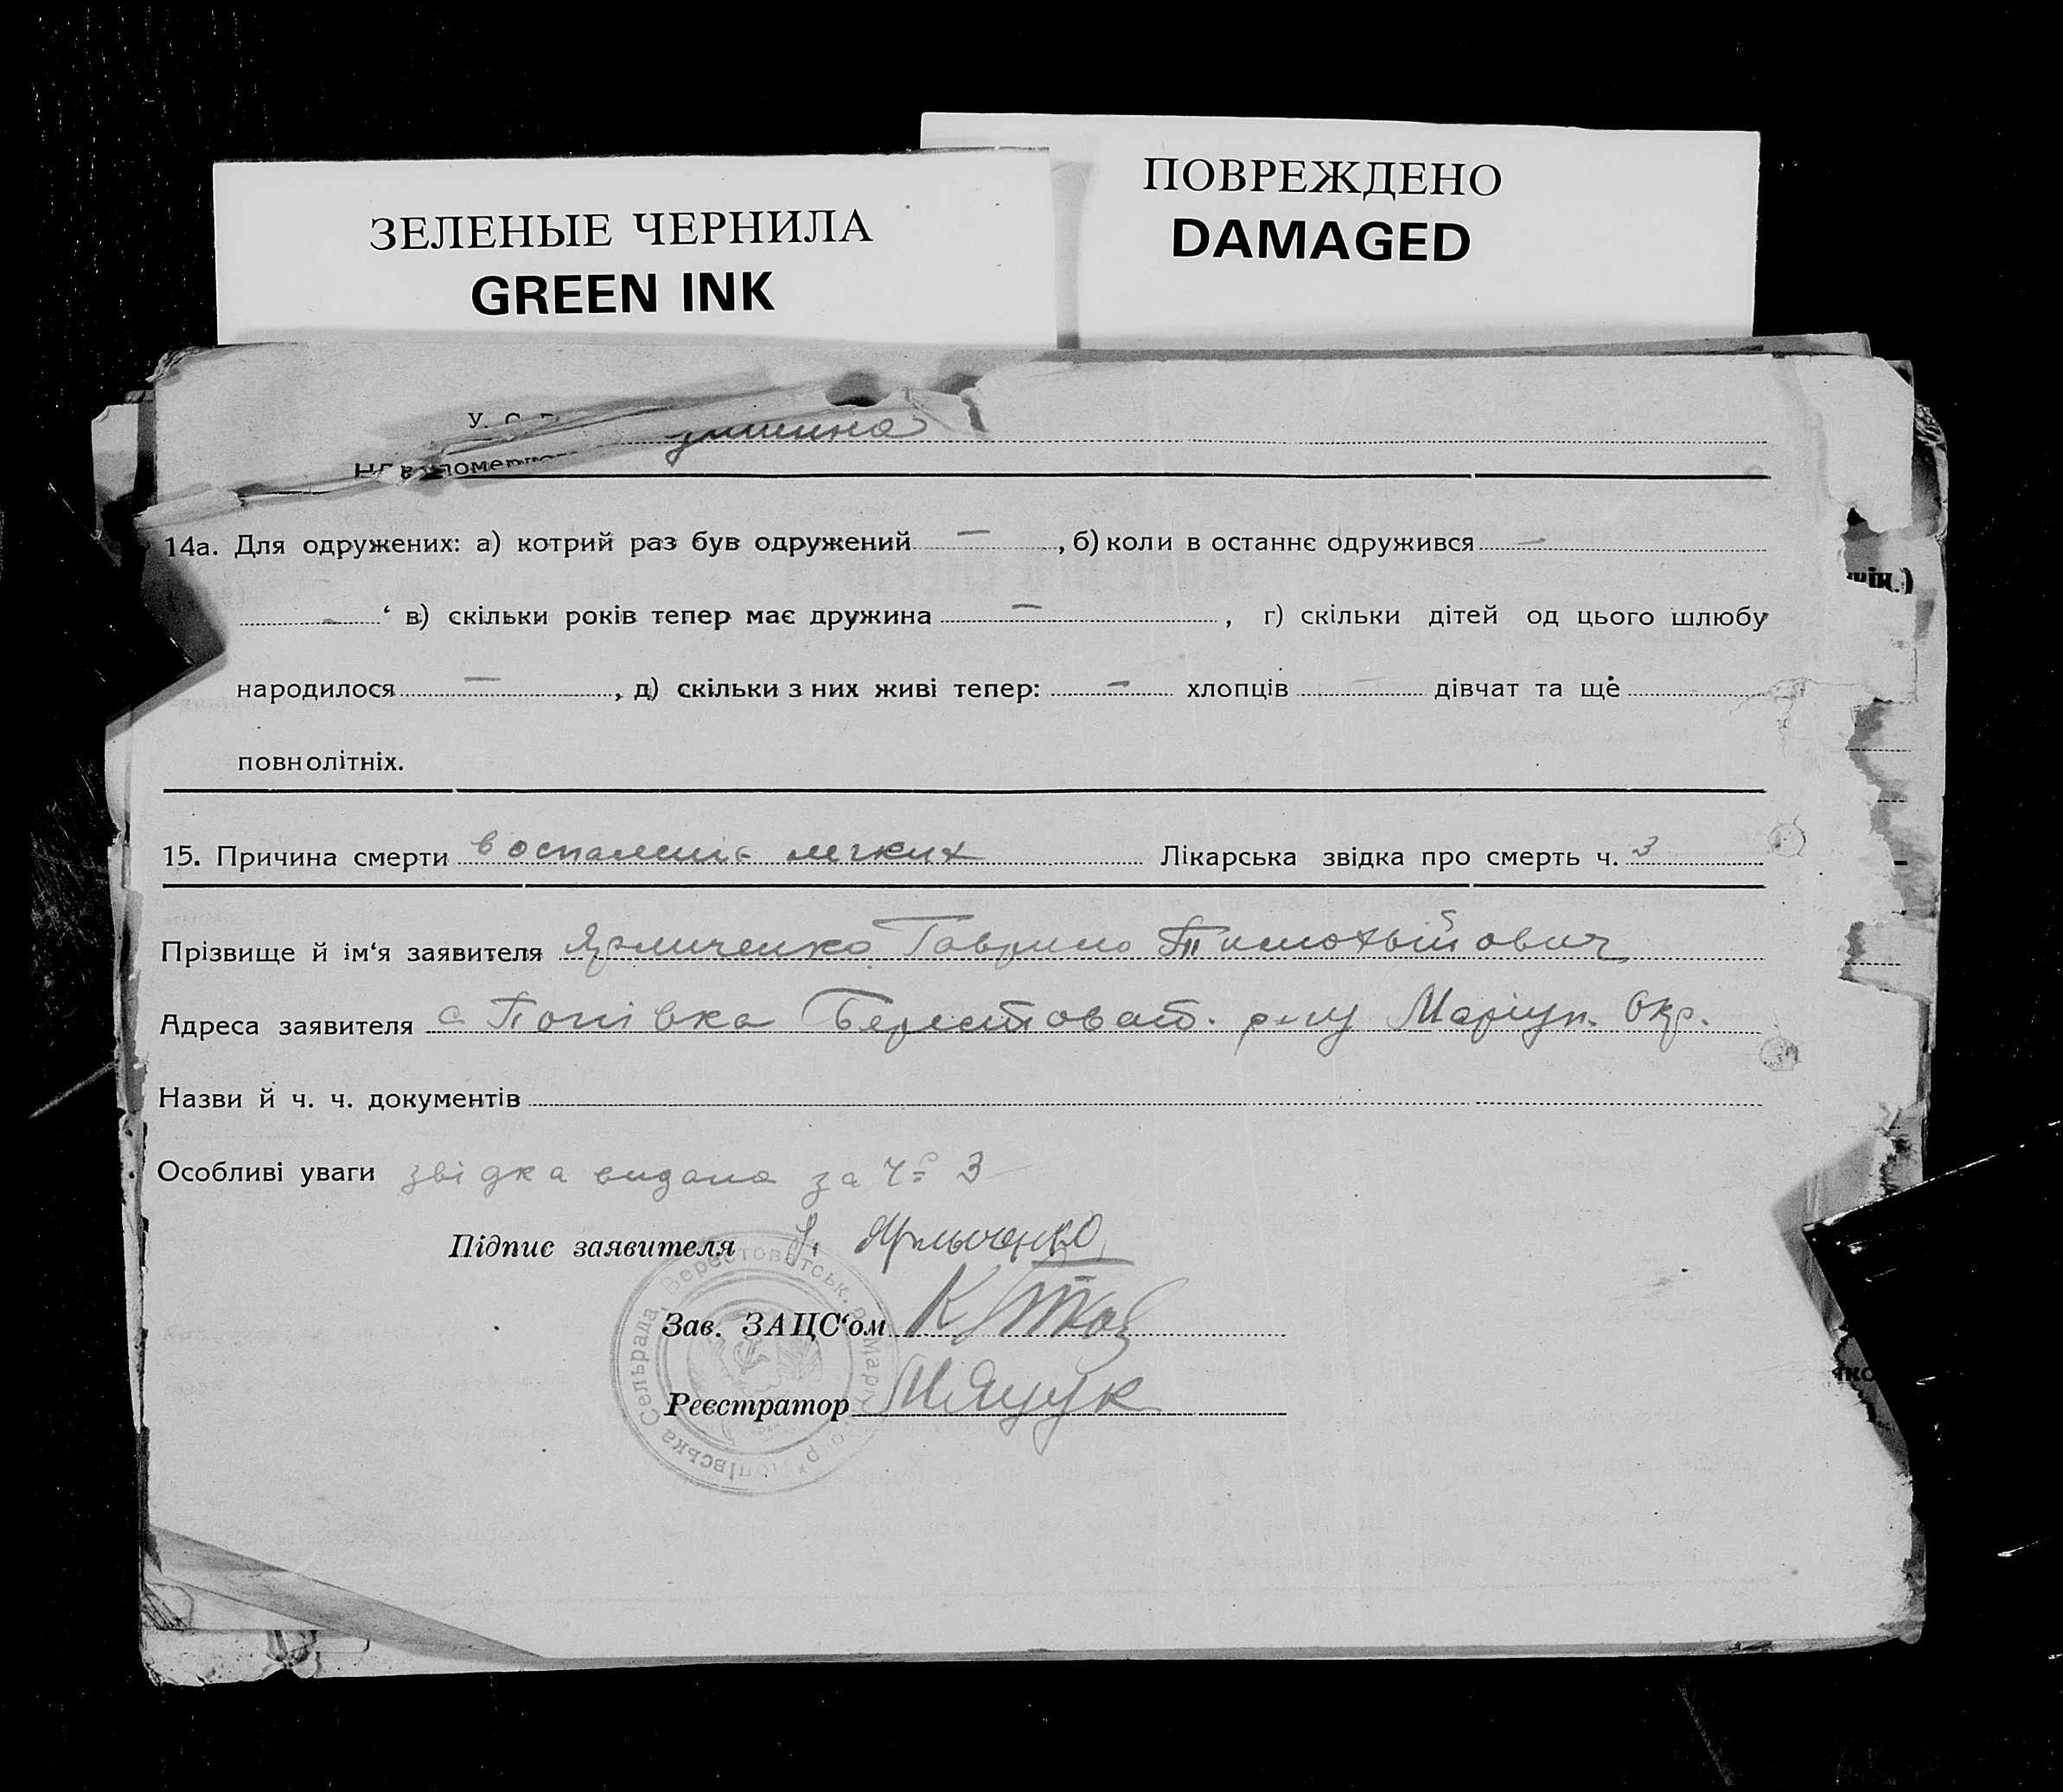 ЗЕЛЕНЫЕ ЧЕРНИЛА
GREEN INK
ПОВРЕЖДЕНО
DAMAGED
У. С.
14а. Для одружених: а) котрий раз був одружений — , б) коли в останнє одружився —
в) скільки років тепер має дружина — , г) скільки дітей од цього шлюбу
народилося — , д) скільки з них живі тепер: — хлопців — дівчат та ще
повнолітніх.
15. Причина смерти воспаленіє легких Лікарська звідка про смерть ч. 3
Прізвище й ім‘я заявителя Ярмиченко Гаврило Тимохвійович
Адреса заявителя с Попівка Берестоват. р-ну Маріуп. Окр.
Назви й ч. ч. документів
Особливі уваги звідка видана за Ч 3
Підпис заявителя
Зав. ЗАЦС‘ом
Реєстратор
Попівська Сельрада, Берестоватськ. р. Маріу окр